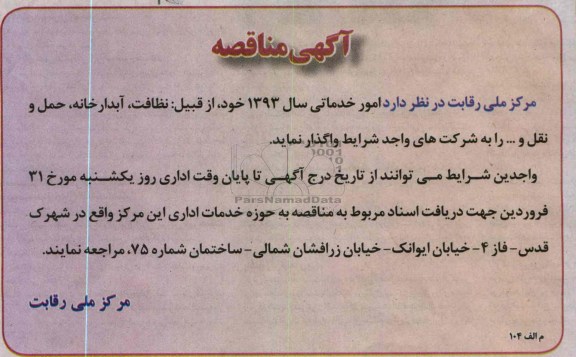 آگهی مناقصه
مرکز ملی رقابت در نظر دارد امور خدماتی سال ۱۳۹۳ خود، از قبیل: نظافت، آبدارخانه، حمل و
نقل و ... را به شرکت های واجد شرایط واگذار نماید.
واجدین شرایط می توانند از تاریخ درج آگهی تا پایان وقت اداری روز یکشنبه مورخ ۳۱
ParsNamadData
فروردین جهت دریافت اسناد مربوط به مناقصه به حوزه خدمات اداری این مرکز واقع در شهرک
قدس- فاز ۴- خیابان ایوانک- خیابان زرافشان شمالی- ساختمان شماره ۷۵، مراجعه نمایند.
مرکز ملی رقابت
م الف ۱۰۴